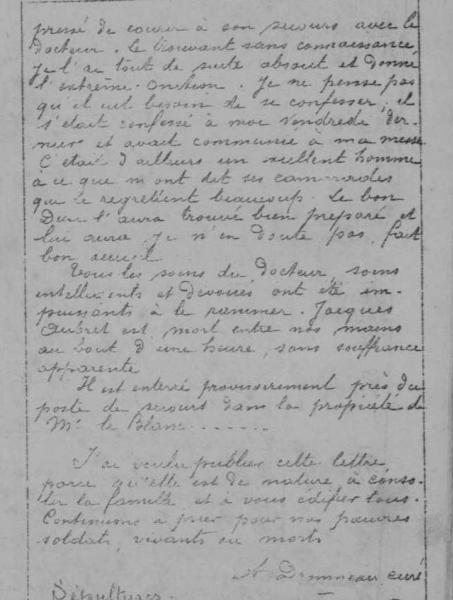 pressé de courir à son secours avec le
docteur. Le trouvant sans connaissance
je l'ai tout de suite absout et donné
l'extrême-onction. Je ne pense pas
qu'il eut besoin de se confesser; il
s'était confessé à moi vendredi der-
nier et avait communié à ma messe
C'était d'ailleurs un excellent homme
à ce que m'ont dit ses camarades
qui le regrettent beaucoup. Le bon
Dieu l'aura trouvé bien préparé et
lui aura, je n'en doute pas, fait
bon accueil.
Tous les soins du docteur, soins
intelligents et dévoués ont été im-
puissants à le ranimer. Jacques
est mort entre nos mains
au bout d'une heure, sans souffrance
apparente
Il est enterré provisoirement près du
poste de secours dans la propriété de
Mr le Blanc.......
J'ai voulu publier cette lettre,
parce qu'elle est de nature à conso-
ler la famille et à vous édifier tous.
Continuons à prier pour nos pauvres
soldats, vivants ou morts
curé
Sépultures.